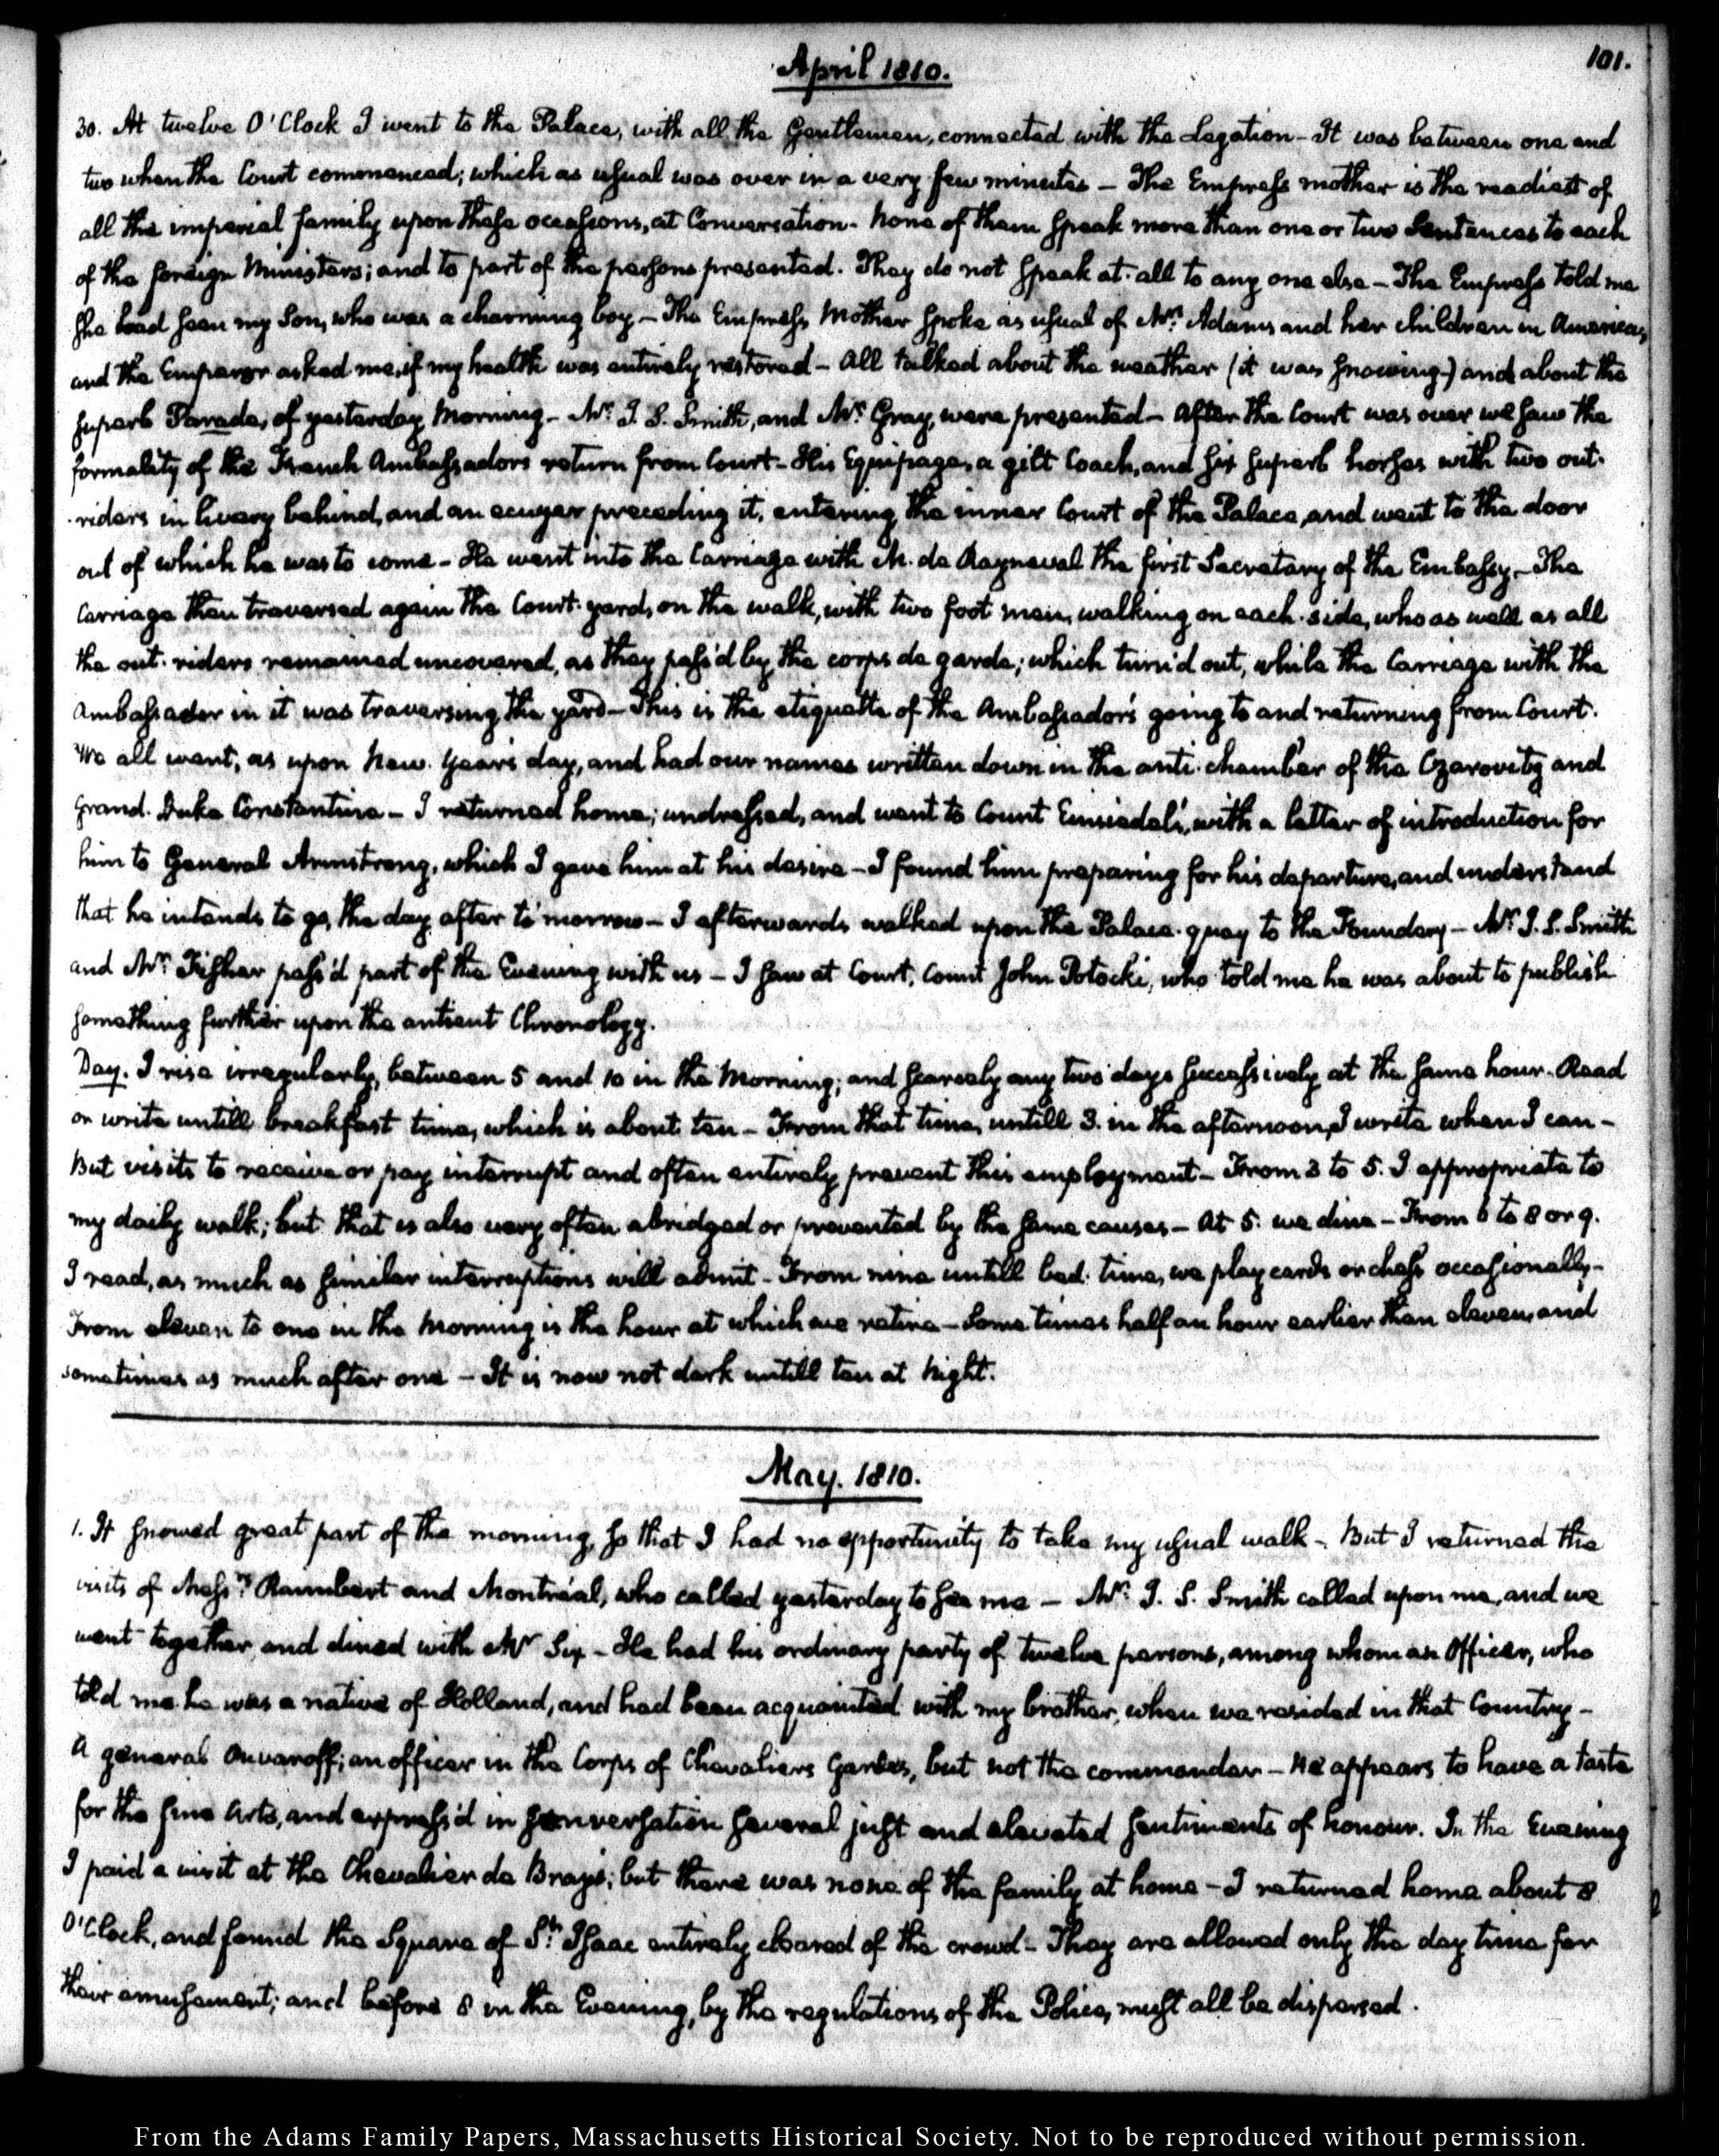 April 1810.
101.
30. At twelve O'Clock I went to the Palace, with all the Gentlemen, connected with the Legation - It was between one and
two when the Court commenced; which as usual was over in a very few minutes - The Empress mother is the readiest of
all the imperial family upon these occasions, at Conversation - None of them speak more than one or two Sentences to each
of the foreign Ministers; and to part of the persons presented. They do not speak at all to any one else - The Empress told me
she had seen my Son, who was a charming boy - The Empress Mother spoke as usual of Mrs. Adams, and her children in America,
and the Emperor asked me, if my health was entirely restored - All talked about the weather (it was snowing) and about the
superb Parade, of yesterday Morning - Mr. J. S. Smith, and Mr. Gray, were presented - After the Court was over we saw the
formality of the French Ambassadors return from Court - His Equipage, a gilt Coach, and six superb horses with two out-
riders in livery behind, and an ecuyer preceding it, entering the inner Court of the Palace, and went to the door
out of which he was to come - He went into the Carriage with M. de Rayneval the first Secretary of the Embassy - The
Carriage then traversed again the Court-yard, on the walk, with two foot men, walking on each side, who as well as all
the out-riders remained uncovered, as they pass'd by the corps de garde; which turn'd out, while the Carriage with the
Ambassador in it was traversing the yard - This is the etiquette of the Ambassador's going to and returning from Court.
We all went, as upon New Year's day, and had our names written down in the anti-chamber of the Czarovitz and
Grand-Duke Constantine - I returned home; undressed, and went to Count Einsiedel's, with a letter of introduction for
him to General Armstrong, which I gave him at his desire - I found him preparing for his departure, and understand
that he intends to go, the day after to morrow - I afterwards walked upon the Palace-quay to the Foundery - Mr. J. S. Smith
and Mr. Fisher pass'd part of the Evening with us - I saw at Court, Count John Potocki, who told me he was about to publish
something further upon the antient Chronology.
Day. I rise irregularly, between 5 and 10 in the Morning; and scarcely any two days successively at the same hour. Read
or write untill breakfast time, which is about ten - From that time, untill 3. in the afternoon, I write when I can -
But visits to receive or pay interrupt and often entirely prevent this employment - From 3 to 5. I appropriate to
my daily walk; but that is also very often abridged or prevented by the same causes - At 5. we dine - From 6 to 8 or 9.
I read, as much as similar interruptions will admit - From nine untill bed-time, we play cards or chess occasionally -
From eleven to one in the Morning is the hour at which we retire - Sometimes half an hour earlier than eleven, and
sometimes as much after one - It is now not dark untill ten at Night.
May. 1810.
1. It snowed great part of the morning, so that I had no opportunity to take my usual walk - But I returned the
visits of Messrs. Raimbert and Montréal, who called yesterday to see me - Mr. J. S. Smith called upon me, and we
went together, and dined with Mr Six - He had his ordinary party of twelve persons, among whom an Officer, who
told me he was a native of Holland, and had been acquainted with my brother, when we resided in that Country -
A general Ouvaroff; an officer in the Corps of Chevaliers Gardes, but not the commander - He appears to have a taste
for the fine Arts, and express'd in conversation several just and elevated sentiments of honour. In the Evening
I paid a visit at the Chevalier de Bray's; but there was none of the family at home - I returned home about 8
O'Clock, and found the Square of St. Isaac entirely cleared of the crowd - They are allowed only the day time for
their amusement; and before 8 in the Evening, by the regulations of the Police, must all be dispersed.
From the Adams Family Papers, Massachusetts Historical Society. Not to be reproduced without permission.